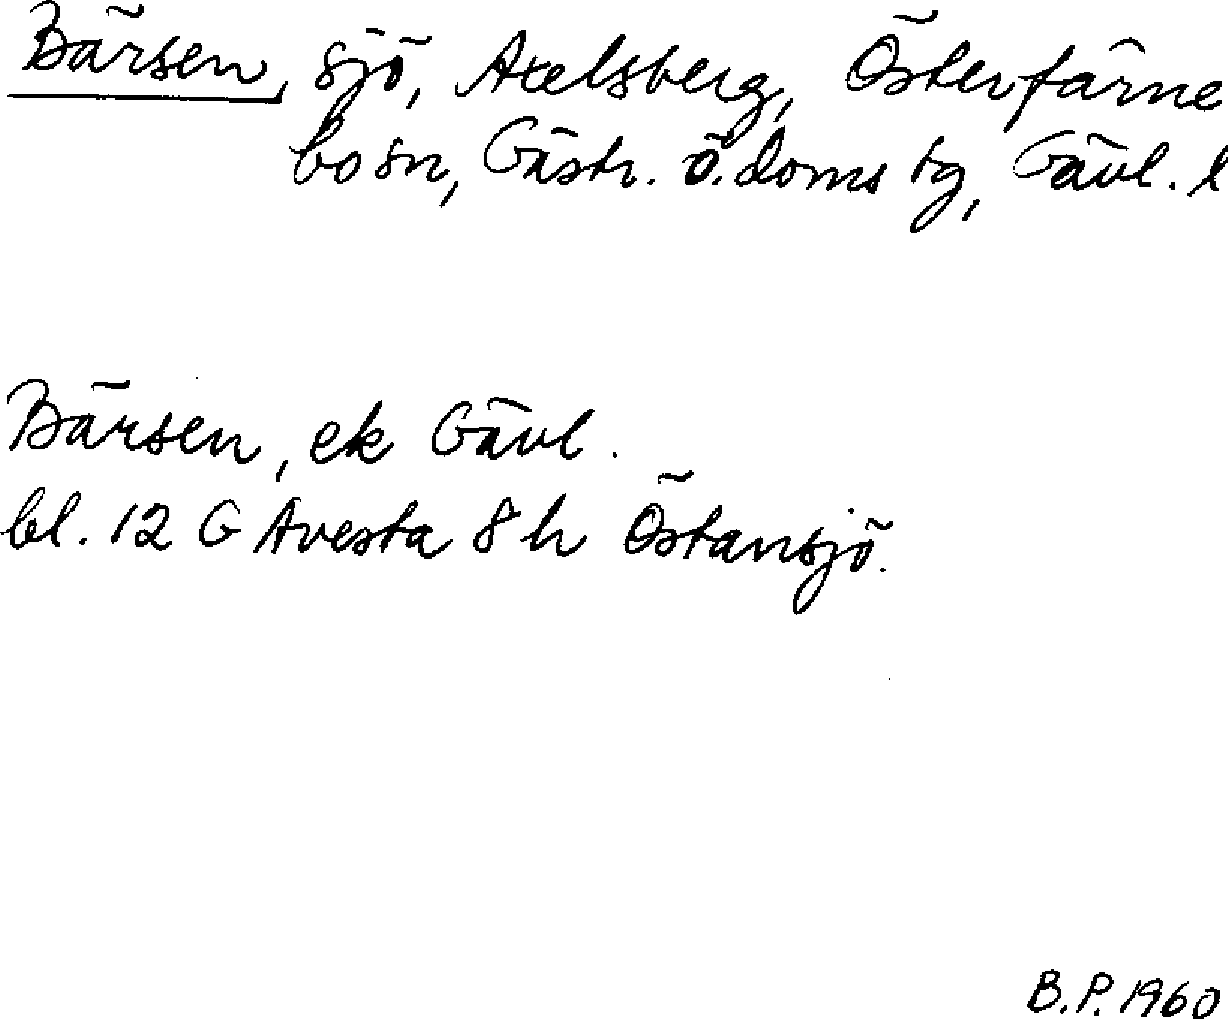 Bärsen, sjö, Axelsberg, Österfärne
bo sn, Gästr. ö. doms tg, Gävl. l
Bärsen, ek Gävl.
bl. 12 G Avesta 8 h Östansjö.
B.P. 1960